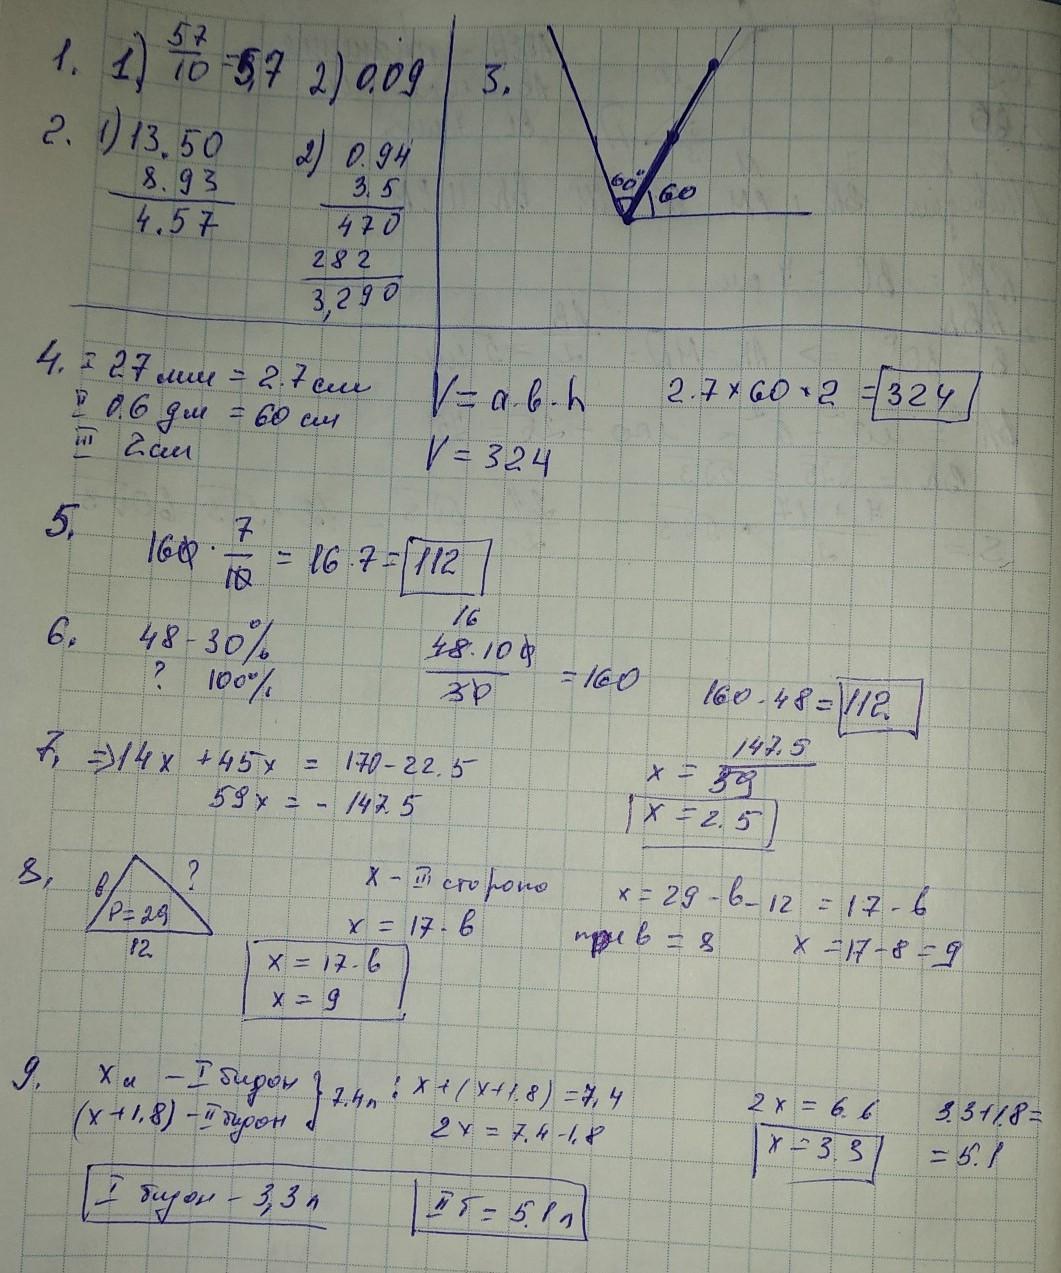 1. 1) 57/10 = 5,7 2) 0.09
2. 1) 13.50
8.93
4.57
2) 0.94
3.5
470
282
3,290
3.
60° 60
4. I 27 мм = 2.7 см
II 0.6 дм = 60 см
III 2 см
V = a·b·h
V = 324
2.7 × 60 × 2 = 324
5. 160 · 7/10 = 16 · 7 = 112
6. 48 - 30%
? 100%
16
48·100/30 = 160
160 - 48 = 112
7. => 14x + 45x = 170 - 22.5
59x = - 147.5
x = 147.5/59
x = 2.5
8. b ?
P = 29
12
x - III сторона
x = 17 - b
x = 17 - b
x = 9
x = 29 - b - 12 = 17 - b
при b = 8 x = 17 - 8 = 9
9. x л - I бидон
(x + 1.8) - II бидон } 7.4 л :
x + (x + 1.8) = 7,4
2x = 7.4 - 1.8
2x = 6.6
x = 3.3
3.3 + 1.8 =
= 5.1
I бидон - 3,3 л
II б = 5.1 л